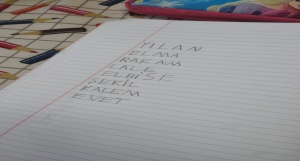 YILAN
ELMA
RAKAM
LALE
ELBİSE
ŞEKİL
KALEM
EVET